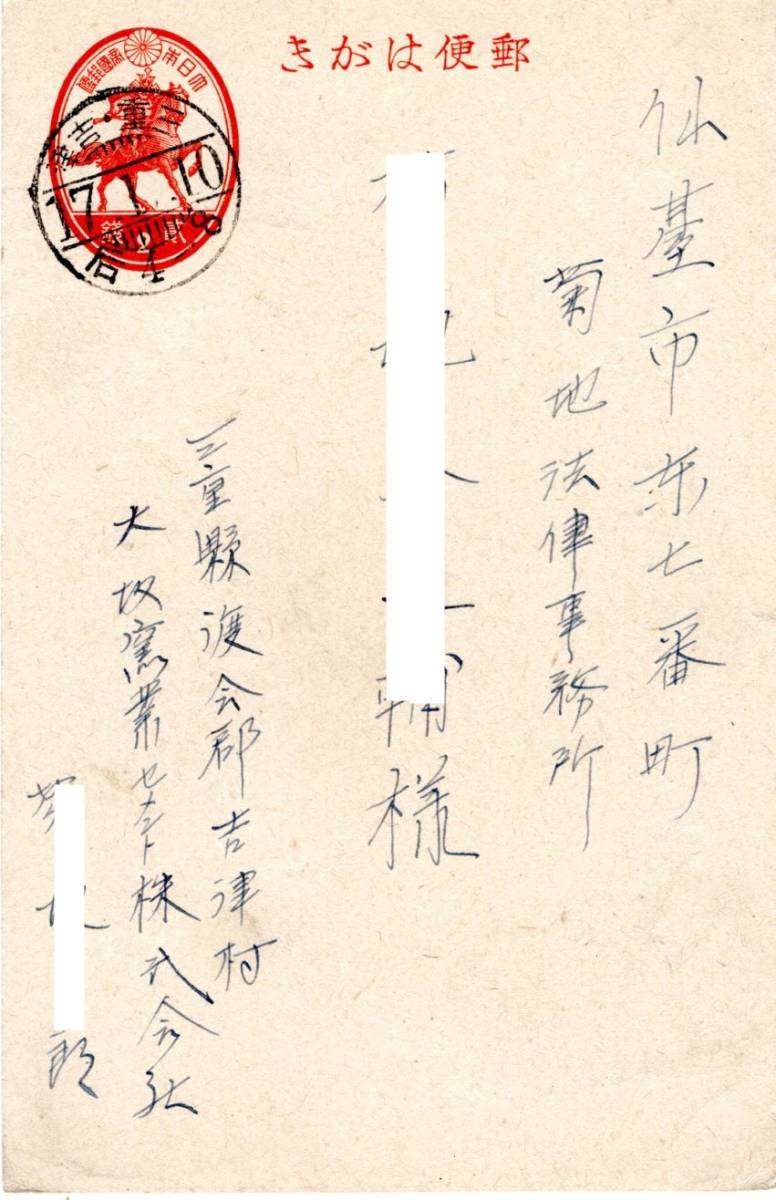 郵便はがき
大日本帝國郵便
貳銭
三重・吉津
17.1.10
后4-8
仙臺市東七番町
菊地法律事務所
輔様
三重縣渡会郡吉津村
大坂窯業セメント株式会社
郎